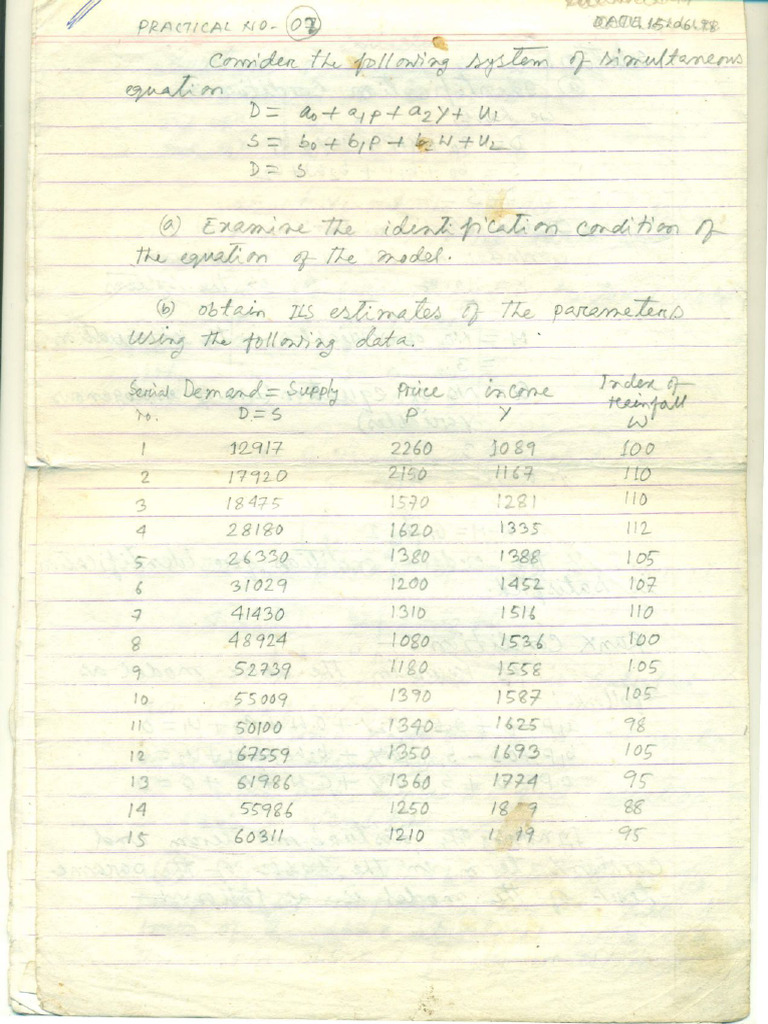 PRACTICAL NO- 07
DATE 15
Consider the following system of simultaneous
equation
D = a₀ + a₁p + a₂y + U₁
S = b₀ + b₁p + b₂W + U₂
D = S
(a) Examine the identification condition of
the equation of the model.
(b) obtain ILS estimates of the parameters
Using the following data.
Serial Demand = Supply Price income Index of
no. D = S P Y Rainfall
W
1 12917 2260 1089 100
2 17920 2150 1167 110
3 18475 1570 1281 110
4 28180 1620 1335 112
5 26330 1380 1388 105
6 31029 1200 1452 107
7 41430 1310 1516 110
8 48924 1080 1536 100
9 52739 1180 1558 105
10 55009 1390 1587 105
11 50100 1340 1625 98
12 67559 1350 1693 105
13 61986 1360 1774 95
14 55986 1250 88
15 60311 1210 95